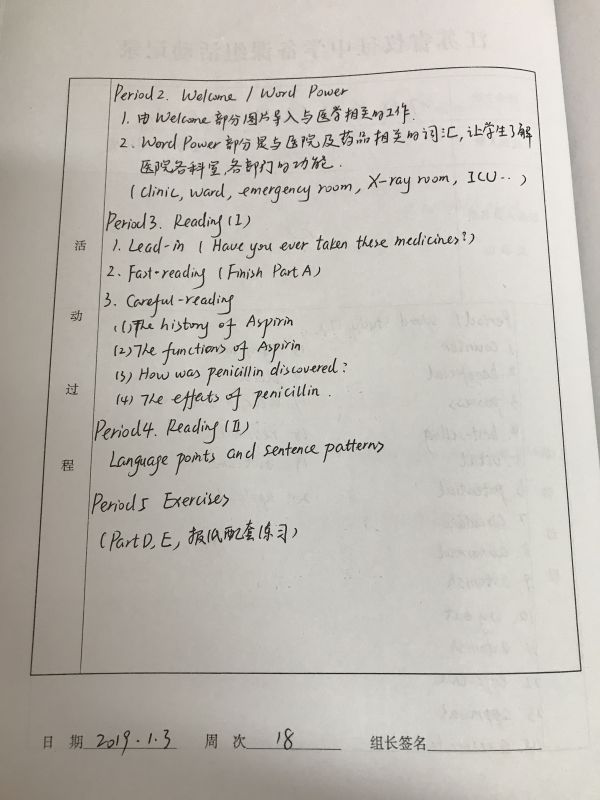 Period 2. Welcome / Word Power
1. 由Welcome部分图片导入与医学相关的工作.
2. Word Power部分是与医院及药品相关的词汇, 让学生了解
医院各科室, 各部门的功能.
( clinic, ward, emergency room, X-ray room, ICU... )
Period 3. Reading (I)
1. Lead-in ( Have you ever taken these medicines? )
2. Fast-reading ( Finish Part A )
3. Careful-reading
(1) The history of Aspirin
(2) The functions of Aspirin
(3) How was penicillin discovered?
(4) The effects of penicillin.
Period 4. Reading (II)
Language points and sentence patterns
Period 5 Exercises
( Part D, E, 报纸配套练习 )
活动过程
日 期 2019.1.3 周 次 18 组长签名